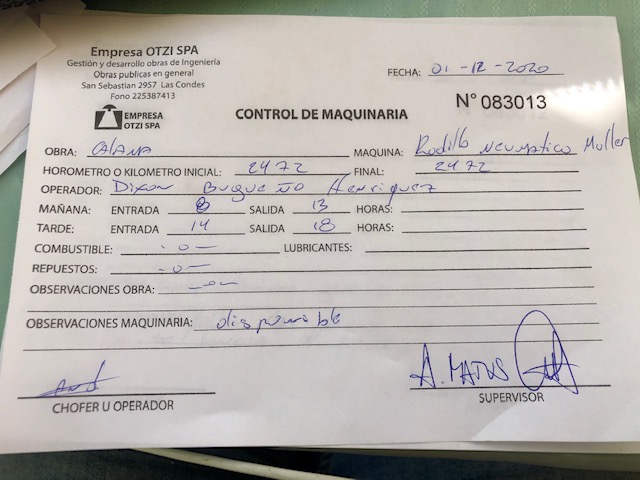 Empresa OTZI SPA
Gestión y desarrollo obras de Ingeniería
Obras publicas en general
San Sebastian 2957 Las Condes
Fono 225387413
FECHA: 01-12-2020
EMPRESA
OTZI SPA
CONTROL DE MAQUINARIA
N° 083013
OBRA: MAQUINA: Rodillo Neumatico Muller
HOROMETRO O KILOMETRO INICIAL: 2472 FINAL: 2472
OPERADOR: Henriquez
MAÑANA: ENTRADA 8 SALIDA 13 HORAS:
TARDE: ENTRADA 14 SALIDA 18 HORAS:
COMBUSTIBLE: -0- LUBRICANTES:
REPUESTOS: -0-
OBSERVACIONES OBRA: -0-
OBSERVACIONES MAQUINARIA: disponible
A. MATUS
CHOFER U OPERADOR SUPERVISOR